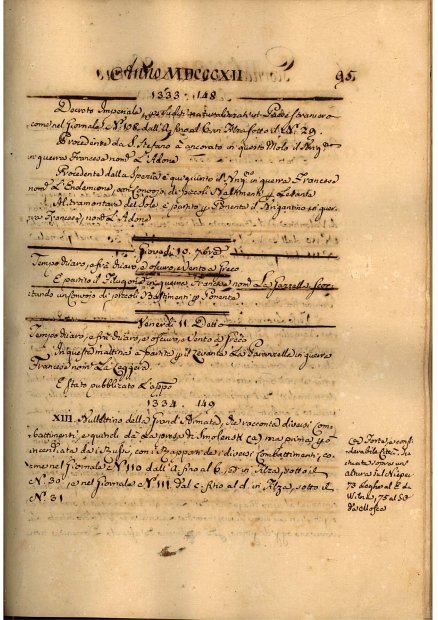 Anno MDCCCXII
95.
1333 148
Decreto Imperiale
come nel Giornale N.º 108. dall' A fino al C in Filza sotto il N.º 29.
Procedente da S. Stefano è ancorato in questo Molo il Brig.no
in guerra Francese nom.º L'Adone
Procedente dalla Spezia è qui giunto il Brig.no in guerra Francese
nom.º L'Endemione, con Convojo di piccoli Bastimenti p Levante
Al tramontare del Sole è partito p Ponente il Brigantino in guer=
ra Francese, nom.º L'Adone
Giovedì 10. 9bre
Tempo chiaro, a fre chiaro, e oscuro, e Vento a Greco
È partito il in guerra, Francese nom.º La Gazzella scor=
tando un Convojo di piccoli Bastimenti p Ponente
Venerdì 11. Detto
Tempo chiaro, a fre chiaro, e oscuro, e Vento a Greco
In questa mattina è partita p il Levante La Paranzella in guerra
Francese nom.º La Leggiera
È stato pubblicato L'appo
1334 149
XIII. Bullettino della Grand'Armata, che racconta diversi Com=
battimenti, e quindi la presa di Smolensk (a) ma prima
incendiata da i Russi, con i Rapporti de i diversi Combattimenti, co=
me nel Giornale N.º 110 dall' A fino al 6, in Filza, sotto il
N.º 30, e nel Giornale N.º 111. dal c fino al d. in Filza, sotto il
N.º 31
(a) Forte, e consi=
derabile Città,
situata sopra un'
altura sul Nieper
73 leghe al E. da
Wilna, 75 al SO
da Mosca